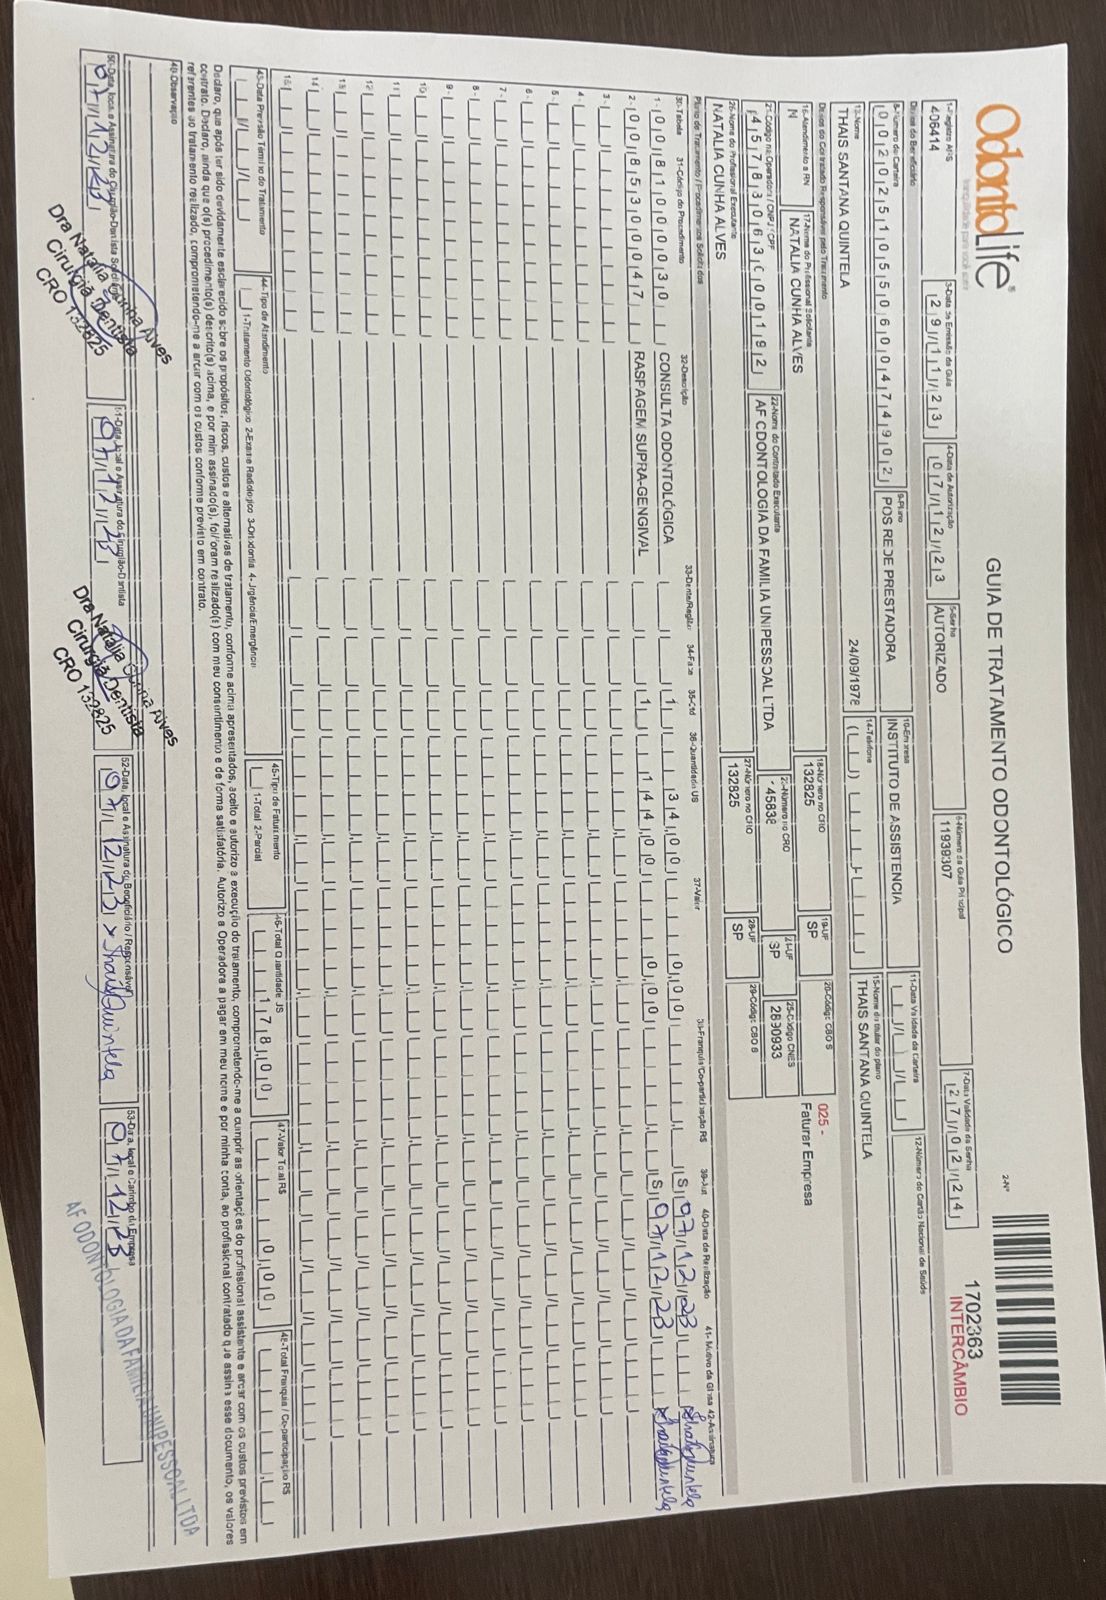 OdontoLife®
GUIA DE TRATAMENTO ODONTOLÓGICO
2-Nº
1702363
INTERCÂMBIO
1-Registro ANS
406414
3-Data de Emissão da Guia
29/11/23
4-Data de Autorização
07/12/23
5-Senha
AUTORIZADO
6-Número da Guia Principal
11939307
7-Data Validade da Senha
27/02/24
Dados do Beneficiário
8-Número da Carteira
00202510550600474902
9-Plano
POS REDE PRESTADORA
10-Empresa
INSTITUTO DE ASSISTENCIA
11-Data Validade da Carteira
12-Número do Cartão Nacional de Saúde
13-Nome
THAIS SANTANA QUINTELA
24/09/1978
14-Telefone
15-Nome do titular do plano
THAIS SANTANA QUINTELA
Dados do Contratado Responsável pelo Tratamento
16-Atendimento a RN
N
17-Nome do Profissional Solicitante
NATALIA CUNHA ALVES
18-Número no CRO
132825
19-UF
SP
20-Código CBO S
025 -
Faturar Empresa
21-Código na Operadora / CNPJ / CPF
45783063000192
22-Nome do Contratado Executante
AF ODONTOLOGIA DA FAMILIA UNIPESSOAL LTDA
23-Número no CRO
45838
24-UF
SP
25-Código CNES
2890933
26-Nome do Profissional Executante
NATALIA CUNHA ALVES
27-Número no CRO
132825
28-UF
SP
29-Código CBO S
Plano de Tratamento / Procedimentos Solicitados
30-Tabela 31-Código do Procedimento 32-Descrição 33-Dente/Região 34-Face 35-Qtd 36-Quantidade US 37-Valor 38-Franquia/Co-participação R$ 39-Aut 40-Data de Realização 41-Motivo da Glosa 42-Assinatura
1- 00 81000030 CONSULTA ODONTOLÓGICA 1 34,00 0,00 S 07/12/23 Thais Quintela
2- 00 85300047 RASPAGEM SUPRA-GENGIVAL 1 144,00 0,00 S 07/12/23 Thais Quintela
3-
4-
5-
6-
7-
8-
9-
10
11
12
13
14
15
43-Data Previsão Término do Tratamento
44-Tipo de Atendimento
1-Tratamento Odontológico 2-Exame Radiológico 3-Ortodontia 4-Urgência/Emergência
45-Tipo de Faturamento
1-Total 2-Parcial
46-Total Quantidade US
178,00
47-Valor Total R$
0,00
48-Total Franquia / Co-participação R$
Declaro, que após ter sido devidamente esclarecido sobre os propósitos, riscos, custos e alternativas de tratamento, conforme acima apresentados, aceito e autorizo a execução do tratamento, comprometendo-me a cumprir as orientações do profissional assistente e arcar com os custos previstos em
contrato. Declaro, ainda que o(s) procedimento(s) descrito(s) acima, e por mim assinado(s), foi/foram realizado(s) com meu consentimento e de forma satisfatória. Autorizo a Operadora a pagar em meu nome e por minha conta, ao profissional contratado que assina esse documento, os valores
referentes ao tratamento realizado, comprometendo-me a arcar com os custos conforme previsto em contrato.
49-Observação
50-Data, local e Assinatura do Cirurgião-Dentista Solicitante
07/12/23
Dra Natalia Cunha Alves
Cirurgiã Dentista
CRO 132825
51-Data, local e Assinatura do Cirurgião-Dentista
07/12/23
Dra Natalia Cunha Alves
Cirurgiã Dentista
CRO 132825
52-Data, local e Assinatura do Beneficiário / Responsável
07/12/23 x Thais Quintela
53-Data, local e Carimbo da Empresa
07/12/23
AF ODONTOLOGIA DA FAMILIA UNIPESSOAL LTDA